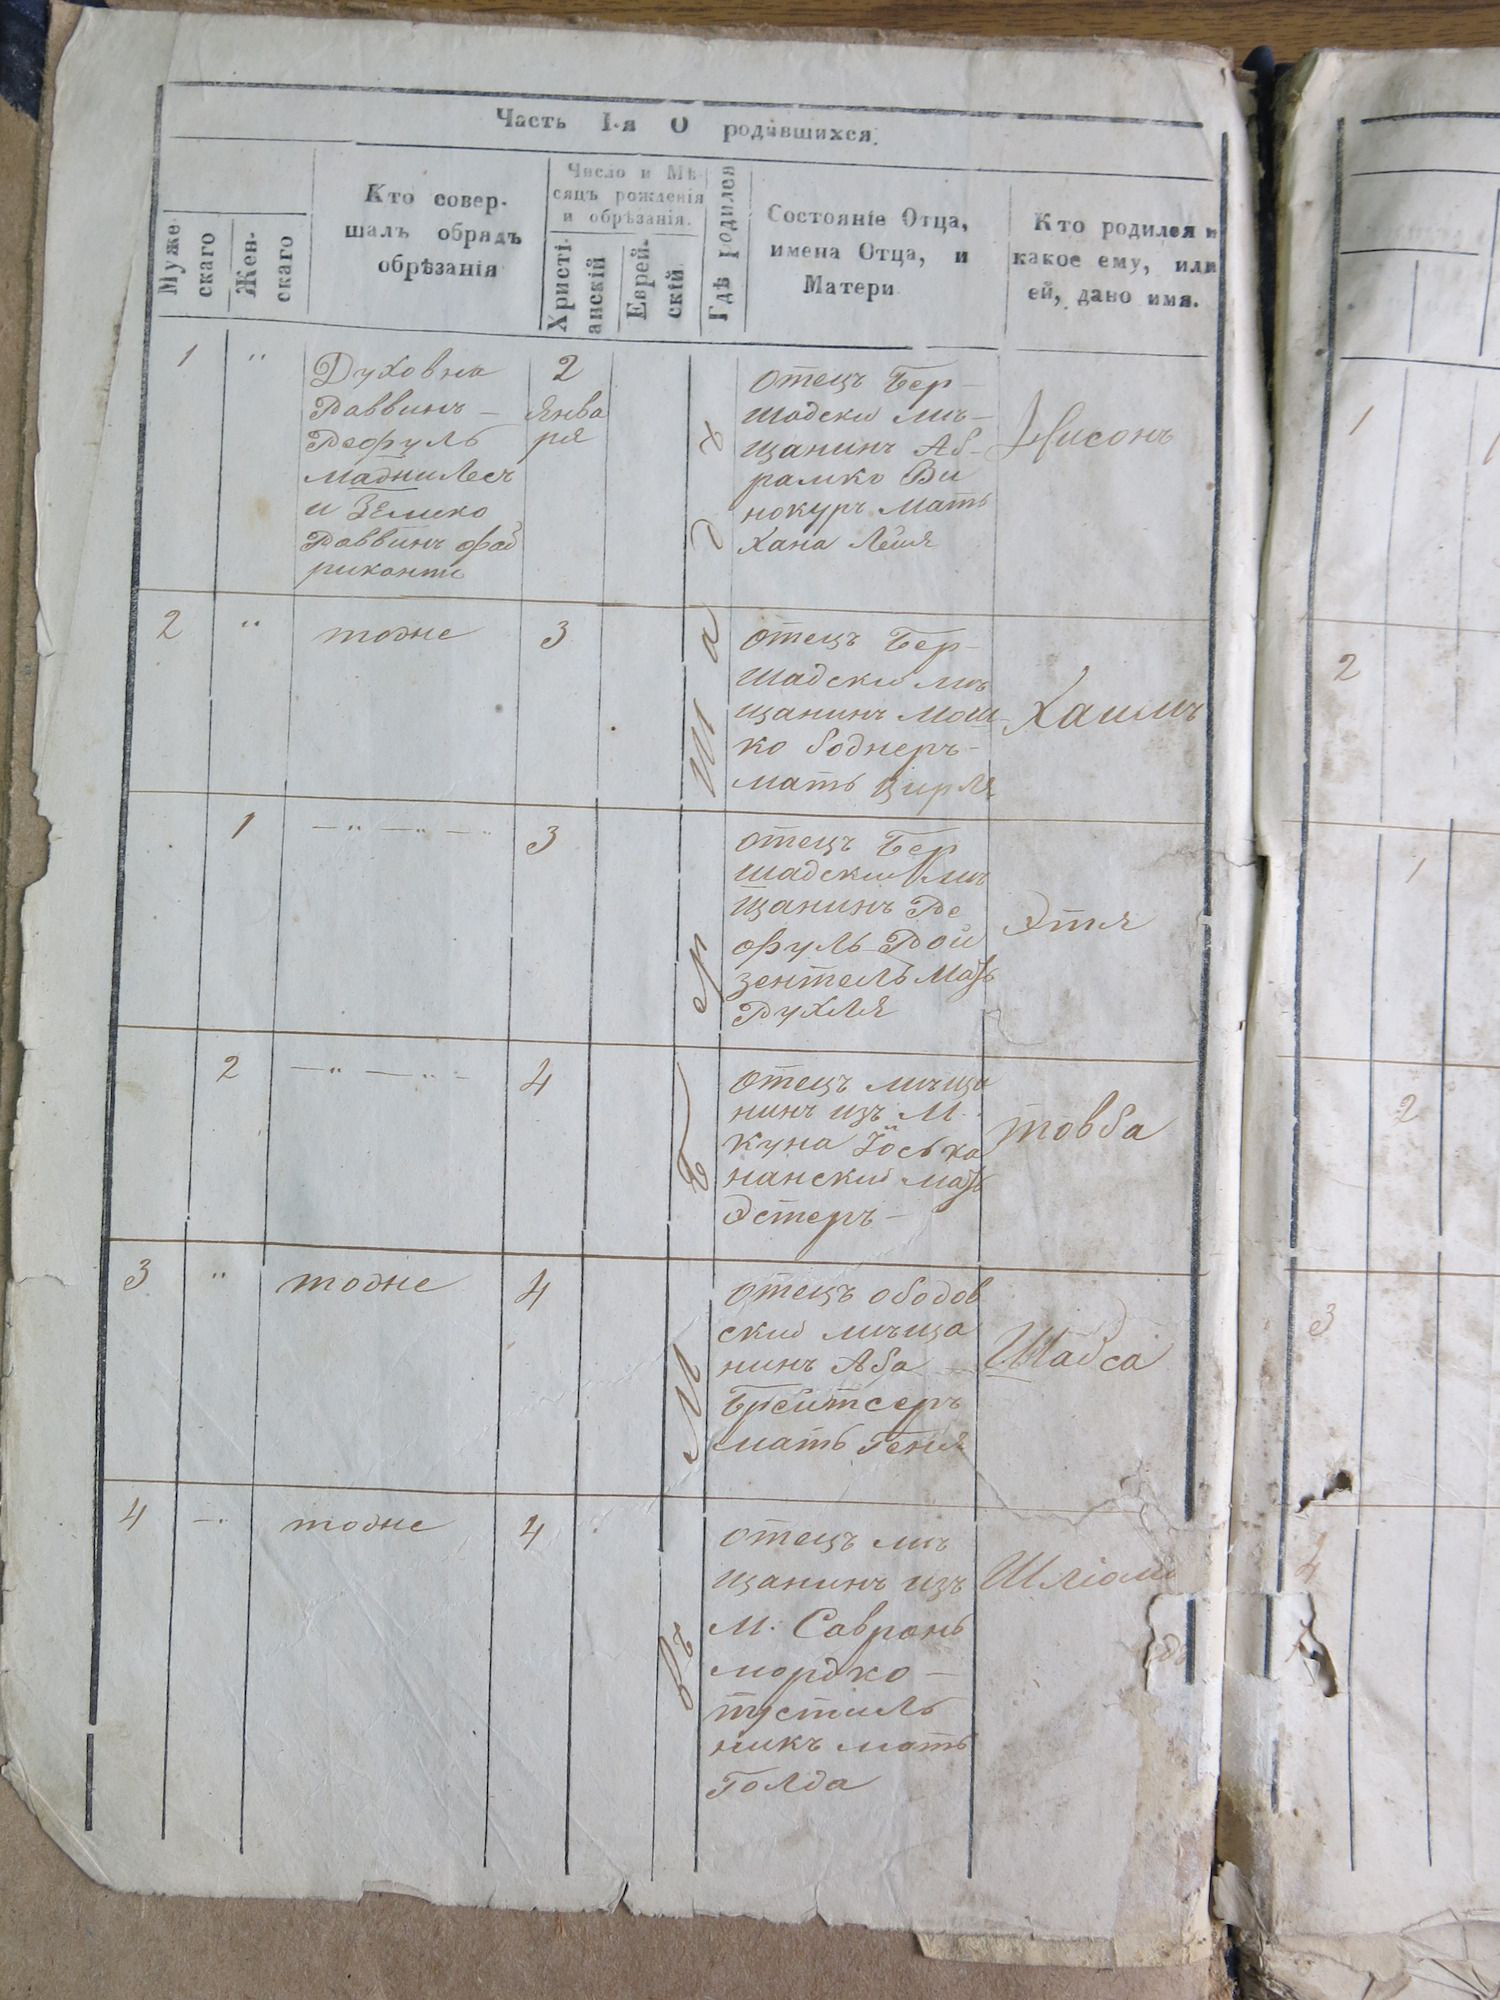 Часть I-я О родившихся.
Муже
скаго
Жен-
скаго
Кто совер-
шалъ обрядъ
обрѣзанія
Число и Мѣ-
сяцъ рожденія
и обрѣзанія.
Христі-
анскій
Еврей-
скій
Гдѣ родился
Состояніе Отца,
имена Отца, и
Матери
Кто родился и
какое ему, или
ей, дано имя.
1
"
Духовна
Раввинъ -
Рефуль
и Землко
Раввинъ фаб
рикантъ
2
Янва
ря
отецъ Бер-
шадски мѣ-
щанинъ Аб-
рамко Ви
нокуръ мать
Хана Лейя
Нисонъ
2
"
тодне
3
отецъ Бер-
шадски мѣ
щанинъ Мош-
ко боднеръ-
мать Цирля
Хаимъ
1
— " — " — "
3
отецъ Бер
шадский мѣ
щанинъ Ре
фуль Рой
зентель мать
Рухля
Этя
2
— " — " -
4
отецъ мѣща
нинъ изъ М.
куна Йоська
нанский мать
Эстеръ-
товба
3
"
тодне
4
отецъ ободов
ский мѣща
нинъ Аба
Брейтсеръ
мать Геня
Шабса
4
-"
тодне
4
отецъ мѣ
щанинъ изъ
М. Савранъ
мордко-
тустиль
никъ мать
Голда
Шліома
Въ М Бершадх
1
2
1
2
3
4